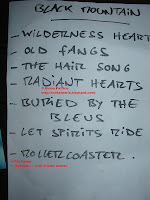 BLACK MOUNTAIN
- WILDERNESS HEART
- OLD FANGS
- THE HAIR SONG
- RADIANT HEARTS
- BURIED BY THE
BLEUS
- LET SPIRITS RIDE
- ROLLERCOASTER.